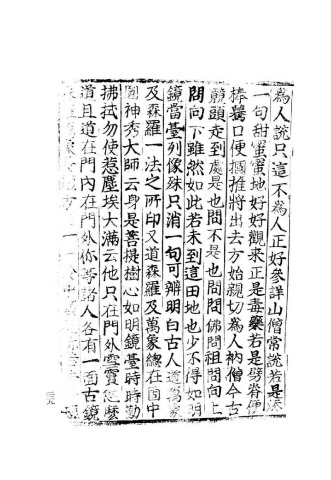 為人說只這不為人正好參詳山僧常說若是
一句甜蜜蜜地好好觀來正是毒藥若是劈脊便
棒驀口便摑推將出去方始親切為人衲僧今古
競頭走到處是也問不是也問問佛問祖問向上
問向下雖然如此若未到這田地也少不得如明
鏡當臺列像殊只消一句可辨明白古人道萬象
及森羅一法之所印又道森羅及萬象緫在箇中
圓神秀大師云身是菩提樹心如明鏡臺時時勤
拂拭勿使惹塵埃大滿云他只在門外雪竇恁麼
道且道在門內在門外你等諸人各有一面古鏡
三九